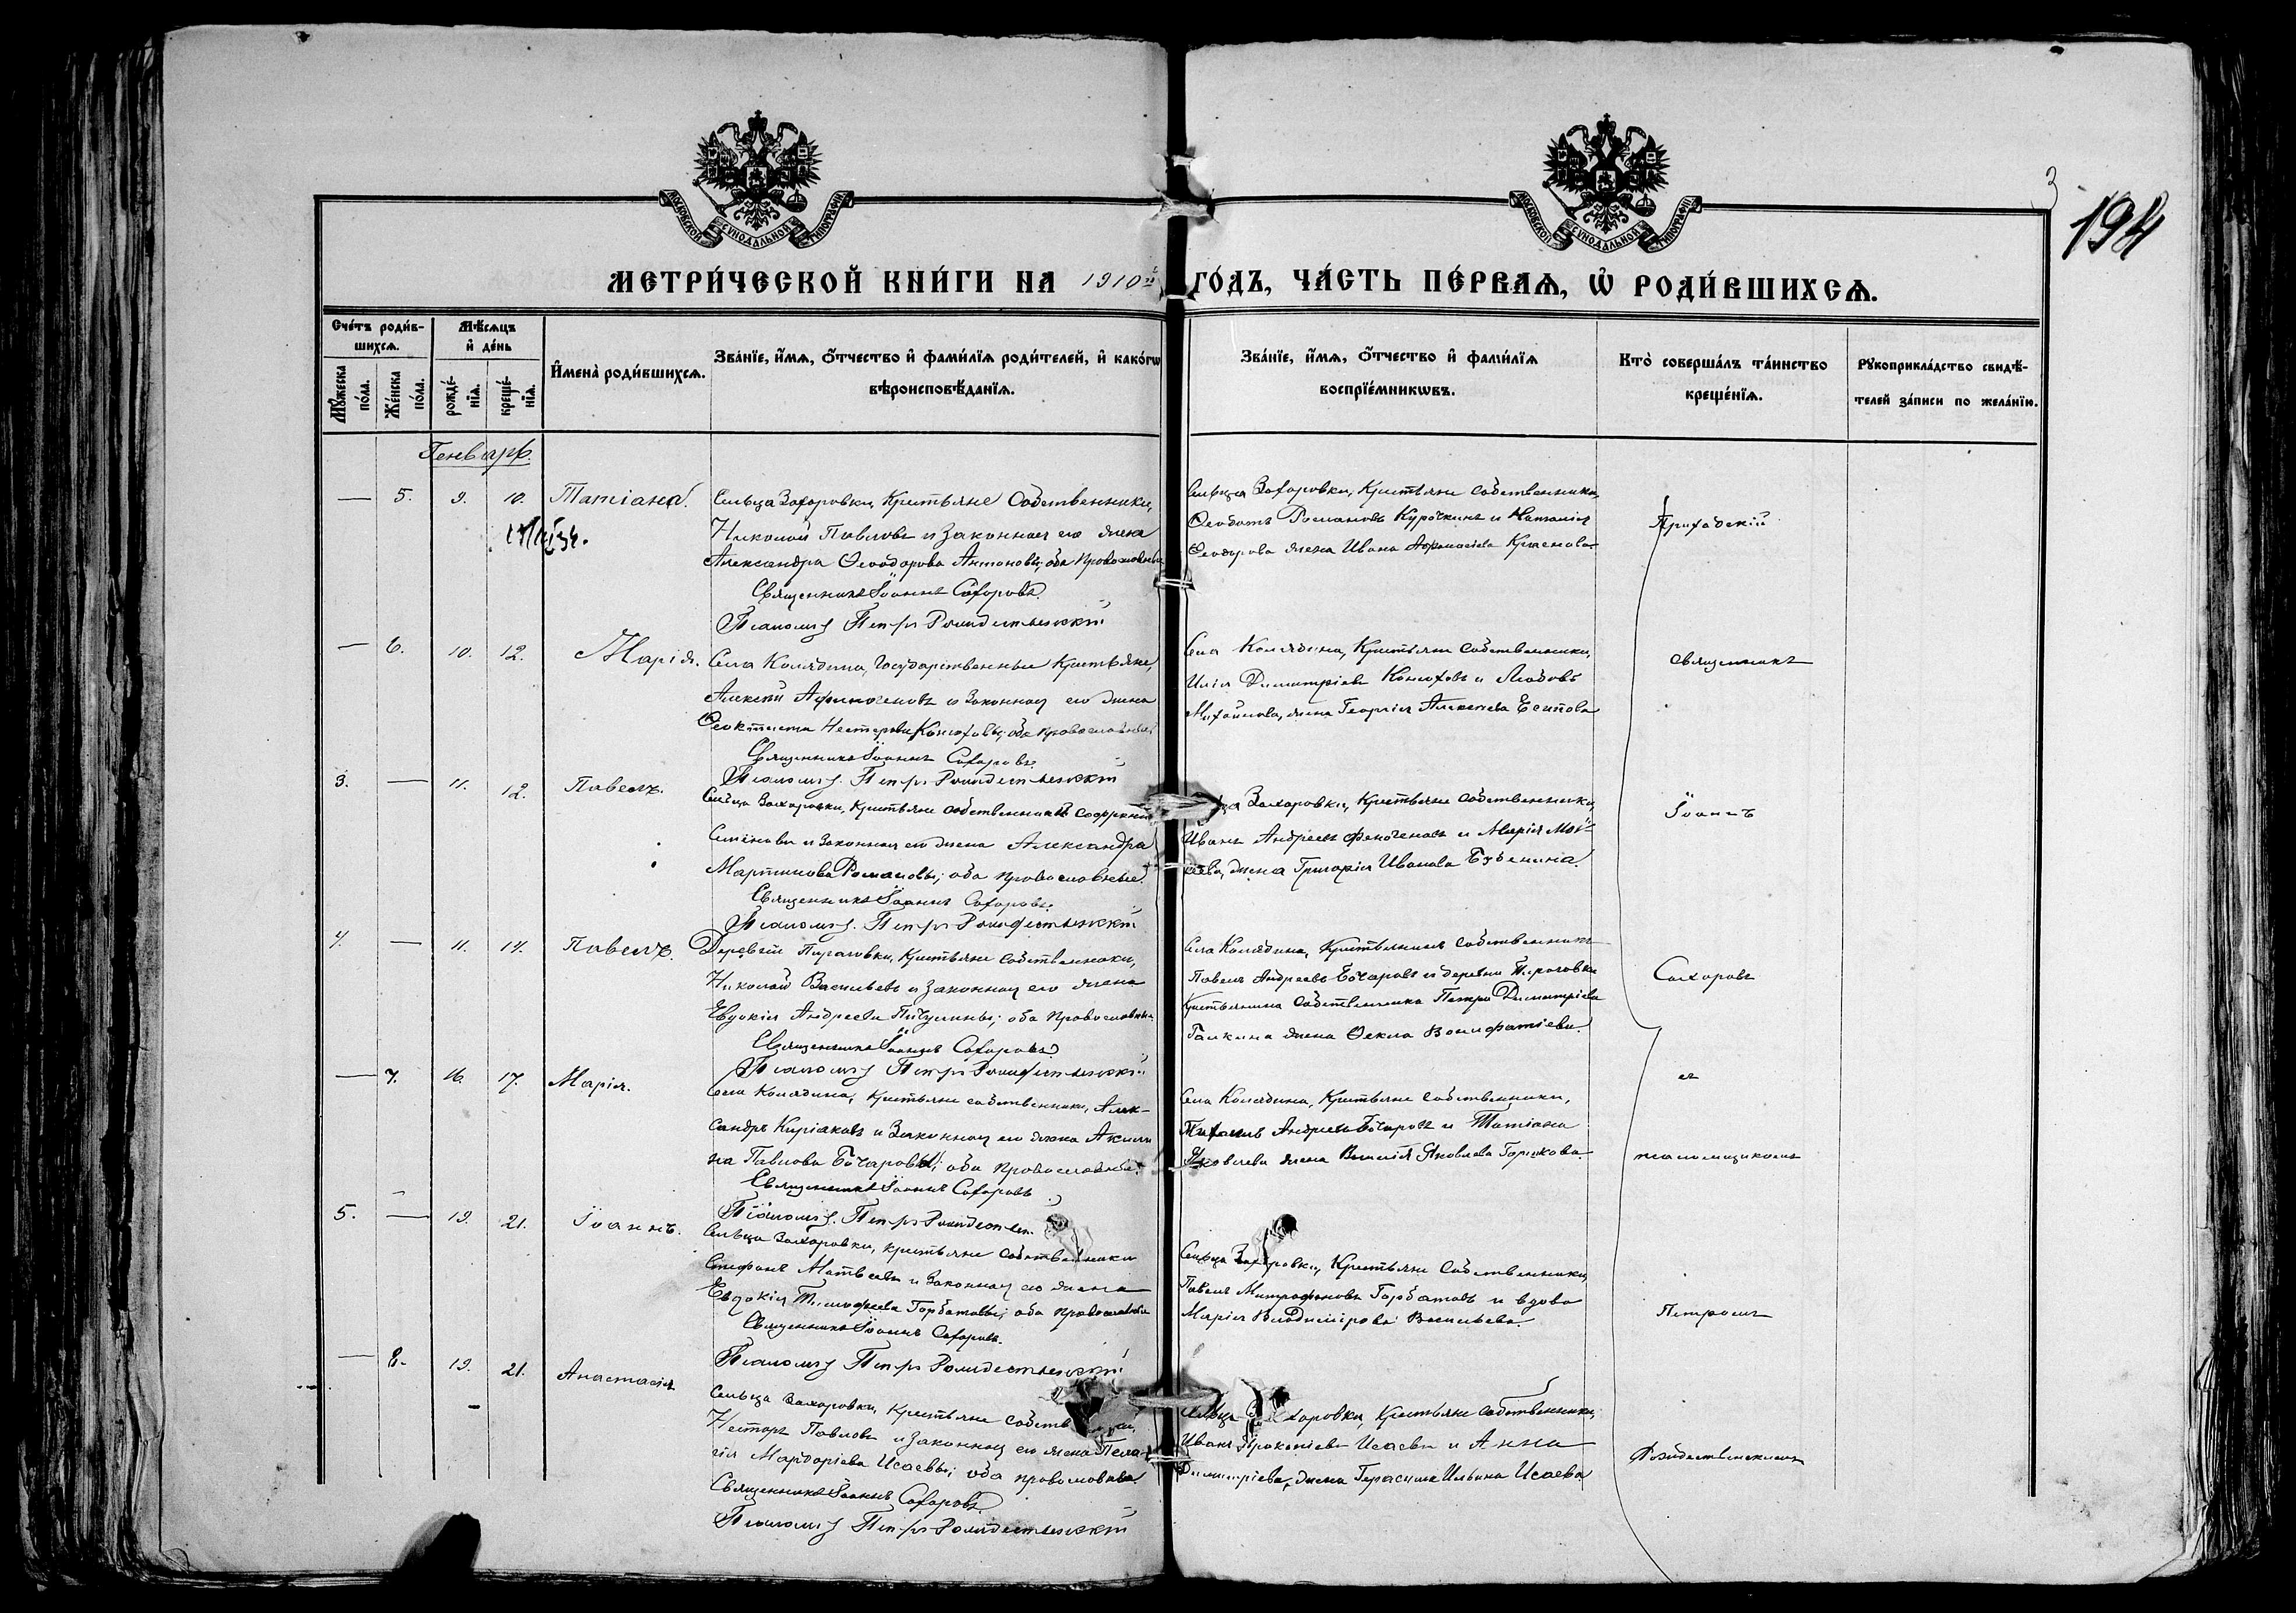 МОСКОВСКОЙ СѴНОДАЛЬНОЙ ТИПОГРАФІИ
МОСКОВСКОЙ СѴНОДАЛЬНОЙ ТИПОГРАФІИ
3
194
МЕТРИ́ЧЕСКОЙ КНИ́ГИ НА 1910й ГО́ДЪ, ЧА́СТЬ ПЕ́РВАѦ, Ѡ҆ РОДИ́ВШИХСѦ.
Сче́тъ роди́в-
шихсѧ.
Мꙋ́жеска по́ла.
Же́нска по́ла.
Мѣ́сѧцъ
и҆ де́нь
рожде́-нїѧ.
креще́-нїѧ.
И҆мена̀ роди́вшихсѧ.
Зва́нїе, и҆́мѧ, ѻ҆́тчество и҆ фами́лїѧ роди́телей, и҆ како́гѡ
вѣроисповѣ́данїѧ.
Зва́нїе, и҆́мѧ, ѻ҆́тчество и҆ фами́лїѧ
воспрїе́мникѡвъ.
Кто̀ соверша́лъ та́инство
креще́нїѧ.
Рꙋкоприкла́дство свидѣ́-
телей за́писи по жела́нїю.
Генварь.
— 5. 9. 10. Татіана.
Сельца Захаровки, Крестьяне Собственники,
Николай Павловъ и законная его жена
Александра Ѳеодорова Антоновы; оба Православные
Священникъ Іоаннъ Сахаровъ.
Псаломщ Петръ Рождественскій
Сельца Захаровки, Крестьяне собственники
Ѳеодотъ Романовъ Курочкинъ и Наталія
Ѳеодорова жена Ивана Афанасіева Краснова.
— 6. 10. 12. Марія.
Села Колядина, Государственные Крестьяне,
Алексѣй Афиногеновъ и Законная его жена
Ѳеоктиста Нестерова Конюховы; оба православные
Священникъ Іоаннъ Сахаровъ.
Псаломщ. Петръ Рождественскій
Села Колядина, Крестьяне собственники,
Илія Димитріевъ Конюховъ и Любовь
Михайлова, жена Георгія Алексѣева Есипова
3. — 11. 12. Павелъ.
Сельца Захаровки, Крестьяне собственники
Семеновъ и законная его жена Александра
Мартинова Романовы; оба православные.
Священникъ Іоаннъ Сахаровъ.
Псаломщ. Петръ Рождественскій
Захаровки, Крестьяне собственники,
Иванъ Андреевъ и Марія
жена Григорія Иванова Бубенина.
4. — 11. 14. Павелъ.
Деревни Пироговки, Крестьяне собственники,
Николай Васильевъ и законная его жена
Евдокія Андреева Пичулины; оба Православные
Священникъ Іоаннъ Сахаровъ
Псаломщ Петръ Рождественскій
Села Колядина, Крестьянинъ собственникъ
Павелъ Андреевъ Бочаровъ и деревни Пироговки
Крестьянина собственника Петра Димитріева
Галкина жена Ѳекла Вонифатіева.
— 7. 16. 17. Марія.
Села Колядина, Крестьяне собственники, Алек-
сандръ Киріаковъ и Законная его жена Акили-
на Павлова Бочаровы; оба православные.
Священникъ Іоаннъ Сахаровъ
Псаломщ. Петръ
Села Колядина, Крестьяне собственники,
Андреевъ Бочаровъ и Татіана
Яковлева жена Василія Яковлева Горшкова.
5. — 19. 21. Іоаннъ.
Сельца Захаровки, крестьяне собственники
Стефанъ Матвѣевъ и Законная его жена
Евдокія Тимофеева Горбатовы; оба православные
Священникъ Іоаннъ Сахаровъ.
Псаломщ Петръ Рождественскій
Сельца Захаровки, Крестьяне Собственники,
Павелъ Митрофановъ Горбатовъ и вдова
Марія Владимірова Васильева.
— 8. 19. 21. Анастасія
Сельца Захаровки, Крестьяне
Несторъ Павловъ и законная его жена Пела-
гія Мардаріева Исаевы; оба православные
Священникъ Іоаннъ Сахаровъ.
Псаломщ Петръ Рождественскій
Крестьяне собственники,
Иванъ Прокопіевъ Исаевъ и Анна
Димитріева, жена Герасима Ильина Исаева
Приходскій
священникъ
Іоаннъ
Сахаровъ
съ
псаломщикомъ
Петромъ
Рождественскимъ